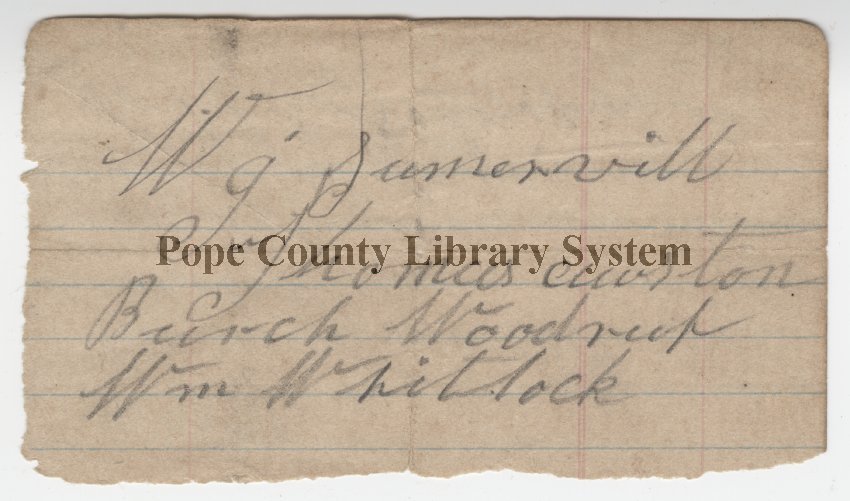 W J Sumervill
Pope County Library System
Thomas
Burch Woodruf
Wm Whitlock